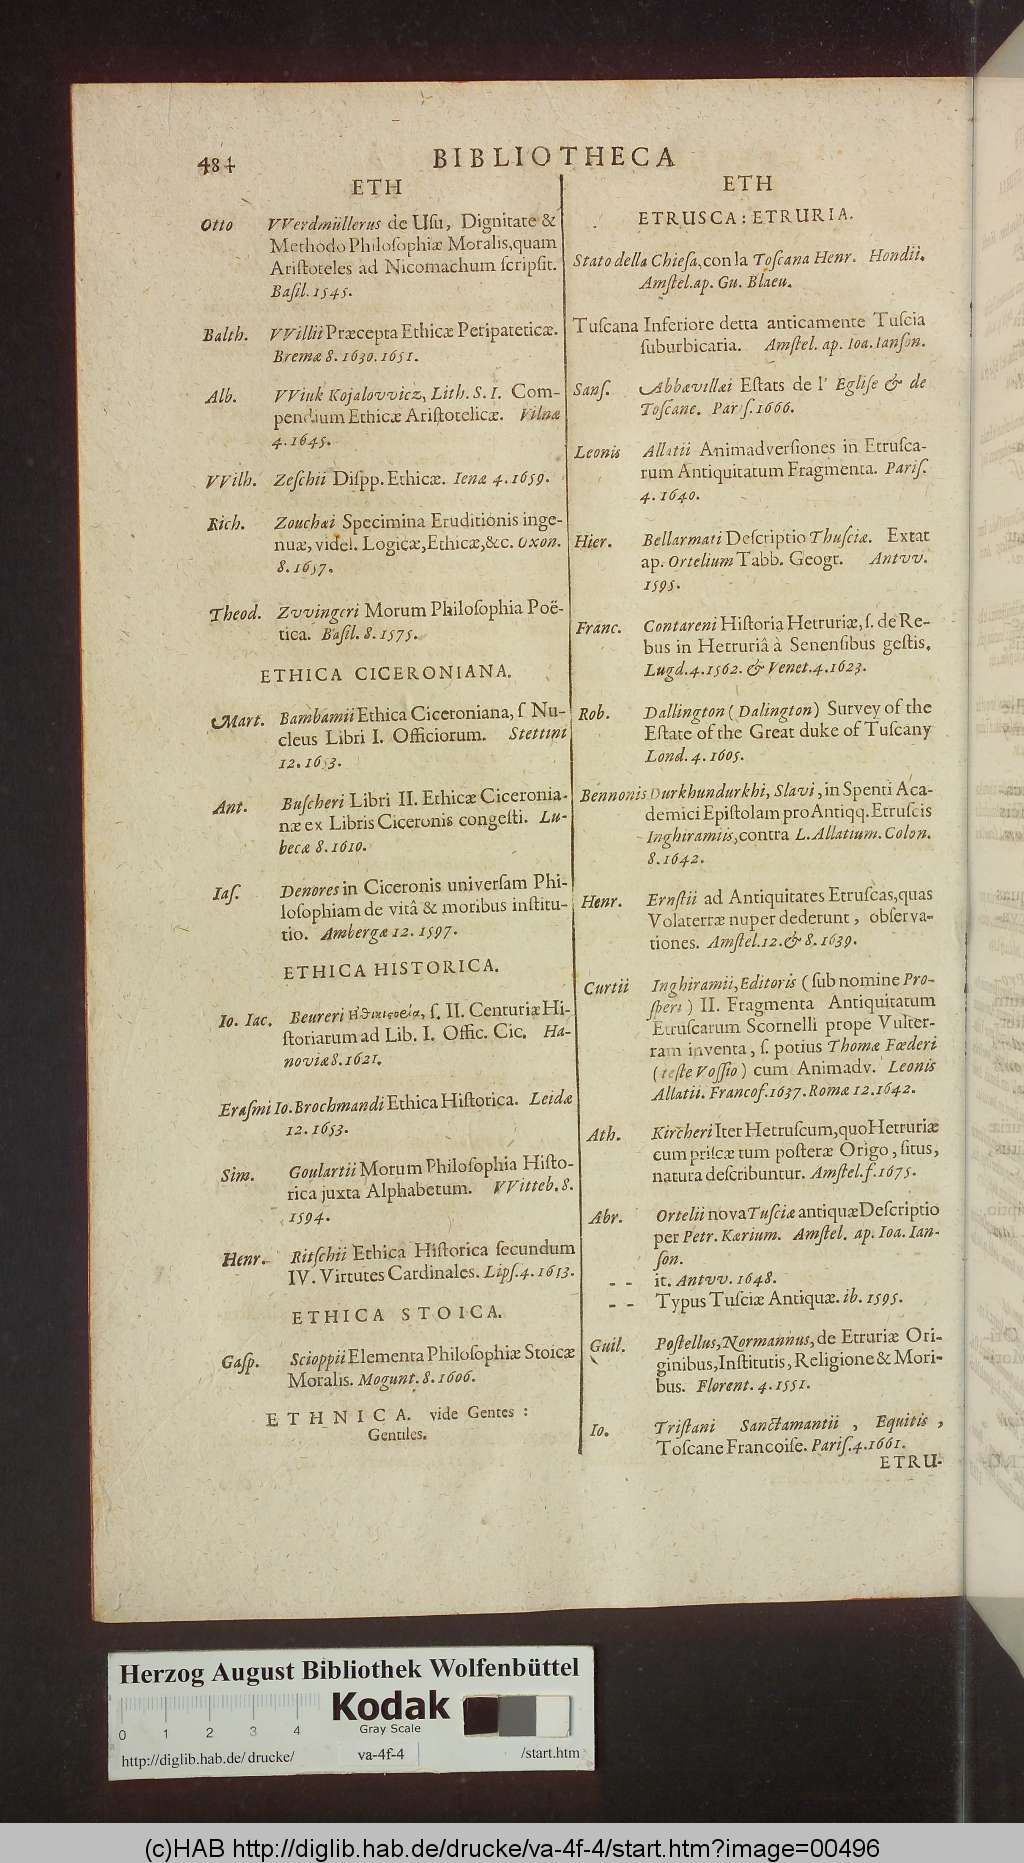 484
BIBLIOTHECA
ETH
Otto VVerdmüllerus de Uſu, Dignitate &
Methodo Philoſophiæ Moralis,quam
Ariſtoteles ad Nicomachum ſcripſit.
Baſil. 1545.
Balth. VVillii Præcepta Ethicæ Peripateticæ.
Bremæ 8. 1630. 1651.
Alb. VViuk Kojalovvicz, Lith. S. I. Com-
pendium Ethicæ Ariſtotelicæ. Vilnæ
4. 1645.
VVilh. Zeſchii Diſpp. Ethicæ. Ienæ 4. 1659.
Rich. Zouchæi Specimina Eruditionis inge-
nuæ, videl. Logicæ, Ethicæ, &c. Oxon.
8. 1657.
Theod. Zvvingeri Morum Philoſophia Poë-
tica. Baſil. 8. 1575.
ETHICA CICERONIANA.
Mart. Bambamii Ethica Ciceroniana, ſ Nu-
cleus Libri I. Officiorum. Stettini
12. 1653.
Ant. Buſcheri Libri II. Ethicæ Ciceronia-
næ ex Libris Ciceronis congeſti. Lu-
becæ 8. 1610.
Iaſ. Denores in Ciceronis univerſam Phi-
loſophiam de vitâ & moribus inſtitu-
tio. Ambergæ 12. 1597.
ETHICA HISTORICA.
Io. Iac. Beureri ſ. II. Centuriæ Hi-
ſtoriarum ad Lib. I. Offic. Cic. Ha-
noviæ 8. 1621.
Eraſmi Io. Brochmandi Ethica Hiſtorica. Leidæ
12. 1653.
Sim. Goulartii Morum Philoſophia Hiſto-
rica juxta Alphabetum. VVitteb. 8.
1594.
Henr. Ritſchii Ethica Hiſtorica ſecundum
IV. Virtutes Cardinales. Lipſ. 4. 1613.
ETHICA STOICA.
Gaſp. Scioppii Elementa Philoſophiæ Stoicæ
Moralis. Mogunt. 8. 1606.
ETHNICA. vide Gentes :
Gentiles.
ETH
ETRUSCA: ETRURIA.
Stato della Chieſa, con la Toſcana Henr. Hondii.
Amſtel. ap. Gu. Blaeu.
Tuſcana Inferiore detta anticamente Tuſcia
ſuburbicaria. Amſtel. ap. Ioa. Ianſon.
Sanſ. Abbævillæi Eſtats de l' Egliſe & de
Toſcane. Pariſ. 1666.
Leonis Allatii Animadverſiones in Etruſca-
rum Antiquitatum Fragmenta. Pariſ.
4. 1640.
Hier. Bellarmati Deſcriptio Thuſciæ. Extat
ap. Ortelium Tabb. Geogr. Antvv.
1595.
Franc. Contareni Hiſtoria Hetruriæ, ſ. de Re-
bus in Hetruriâ à Senenſibus geſtis.
Lugd. 4. 1562. & Venet. 4. 1623.
Rob. Dallington (Dalington) Survey of the
Eſtate of the Great duke of Tuſcany
Lond. 4. 1605.
Bennonis Durkhundurkhi, Slavi, in Spenti Aca-
demici Epiſtolam pro Antiqq. Etruſcis
Inghiramiis, contra L. Allatium. Colon.
8. 1642.
Henr. Ernſtii ad Antiquitates Etruſcas, quas
Volaterræ nuper dederunt, obſerva-
tiones. Amſtel. 12. & 8. 1639.
Curtii Inghiramii, Editoris (ſub nomine Pro-
ſperi) II. Fragmenta Antiquitatum
Etruſcarum Scornelli prope Vulter-
ram inventa, ſ. potius Thomæ Fœderi
(teſte Voſſio) cum Animadv. Leonis
Allatii. Francof. 1637. Romæ 12. 1642.
Ath. Kircheri Iter Hetruſcum, quo Hetruriæ
cum priſcæ tum poſteræ Origo, ſitus,
natura deſcribuntur. Amſtel. f. 1675.
Abr. Ortelii nova Tuſciæ antiquæ Deſcriptio
per Petr. Kærium. Amſtel. ap. Ioa. Ian-
ſon.
- - it. Antvv. 1648.
- - Typus Tuſciæ Antiquæ. ib. 1595.
Guil. Poſtellus, Normannus, de Etruriæ Ori-
ginibus, Inſtitutis, Religione & Mori-
bus. Florent. 4. 1551.
Io. Triſtani Sanctamantii, Equitis,
Toſcane Francoiſe. Pariſ. 4. 1661.
ETRU-
Herzog August Bibliothek Wolfenbüttel
Kodak
Gray Scale
0 1 2 3 4
http://diglib.hab.de/ drucke/ va-4f-4 /start.htm
(c)HAB http://diglib.hab.de/drucke/va-4f-4/start.htm?image=00496